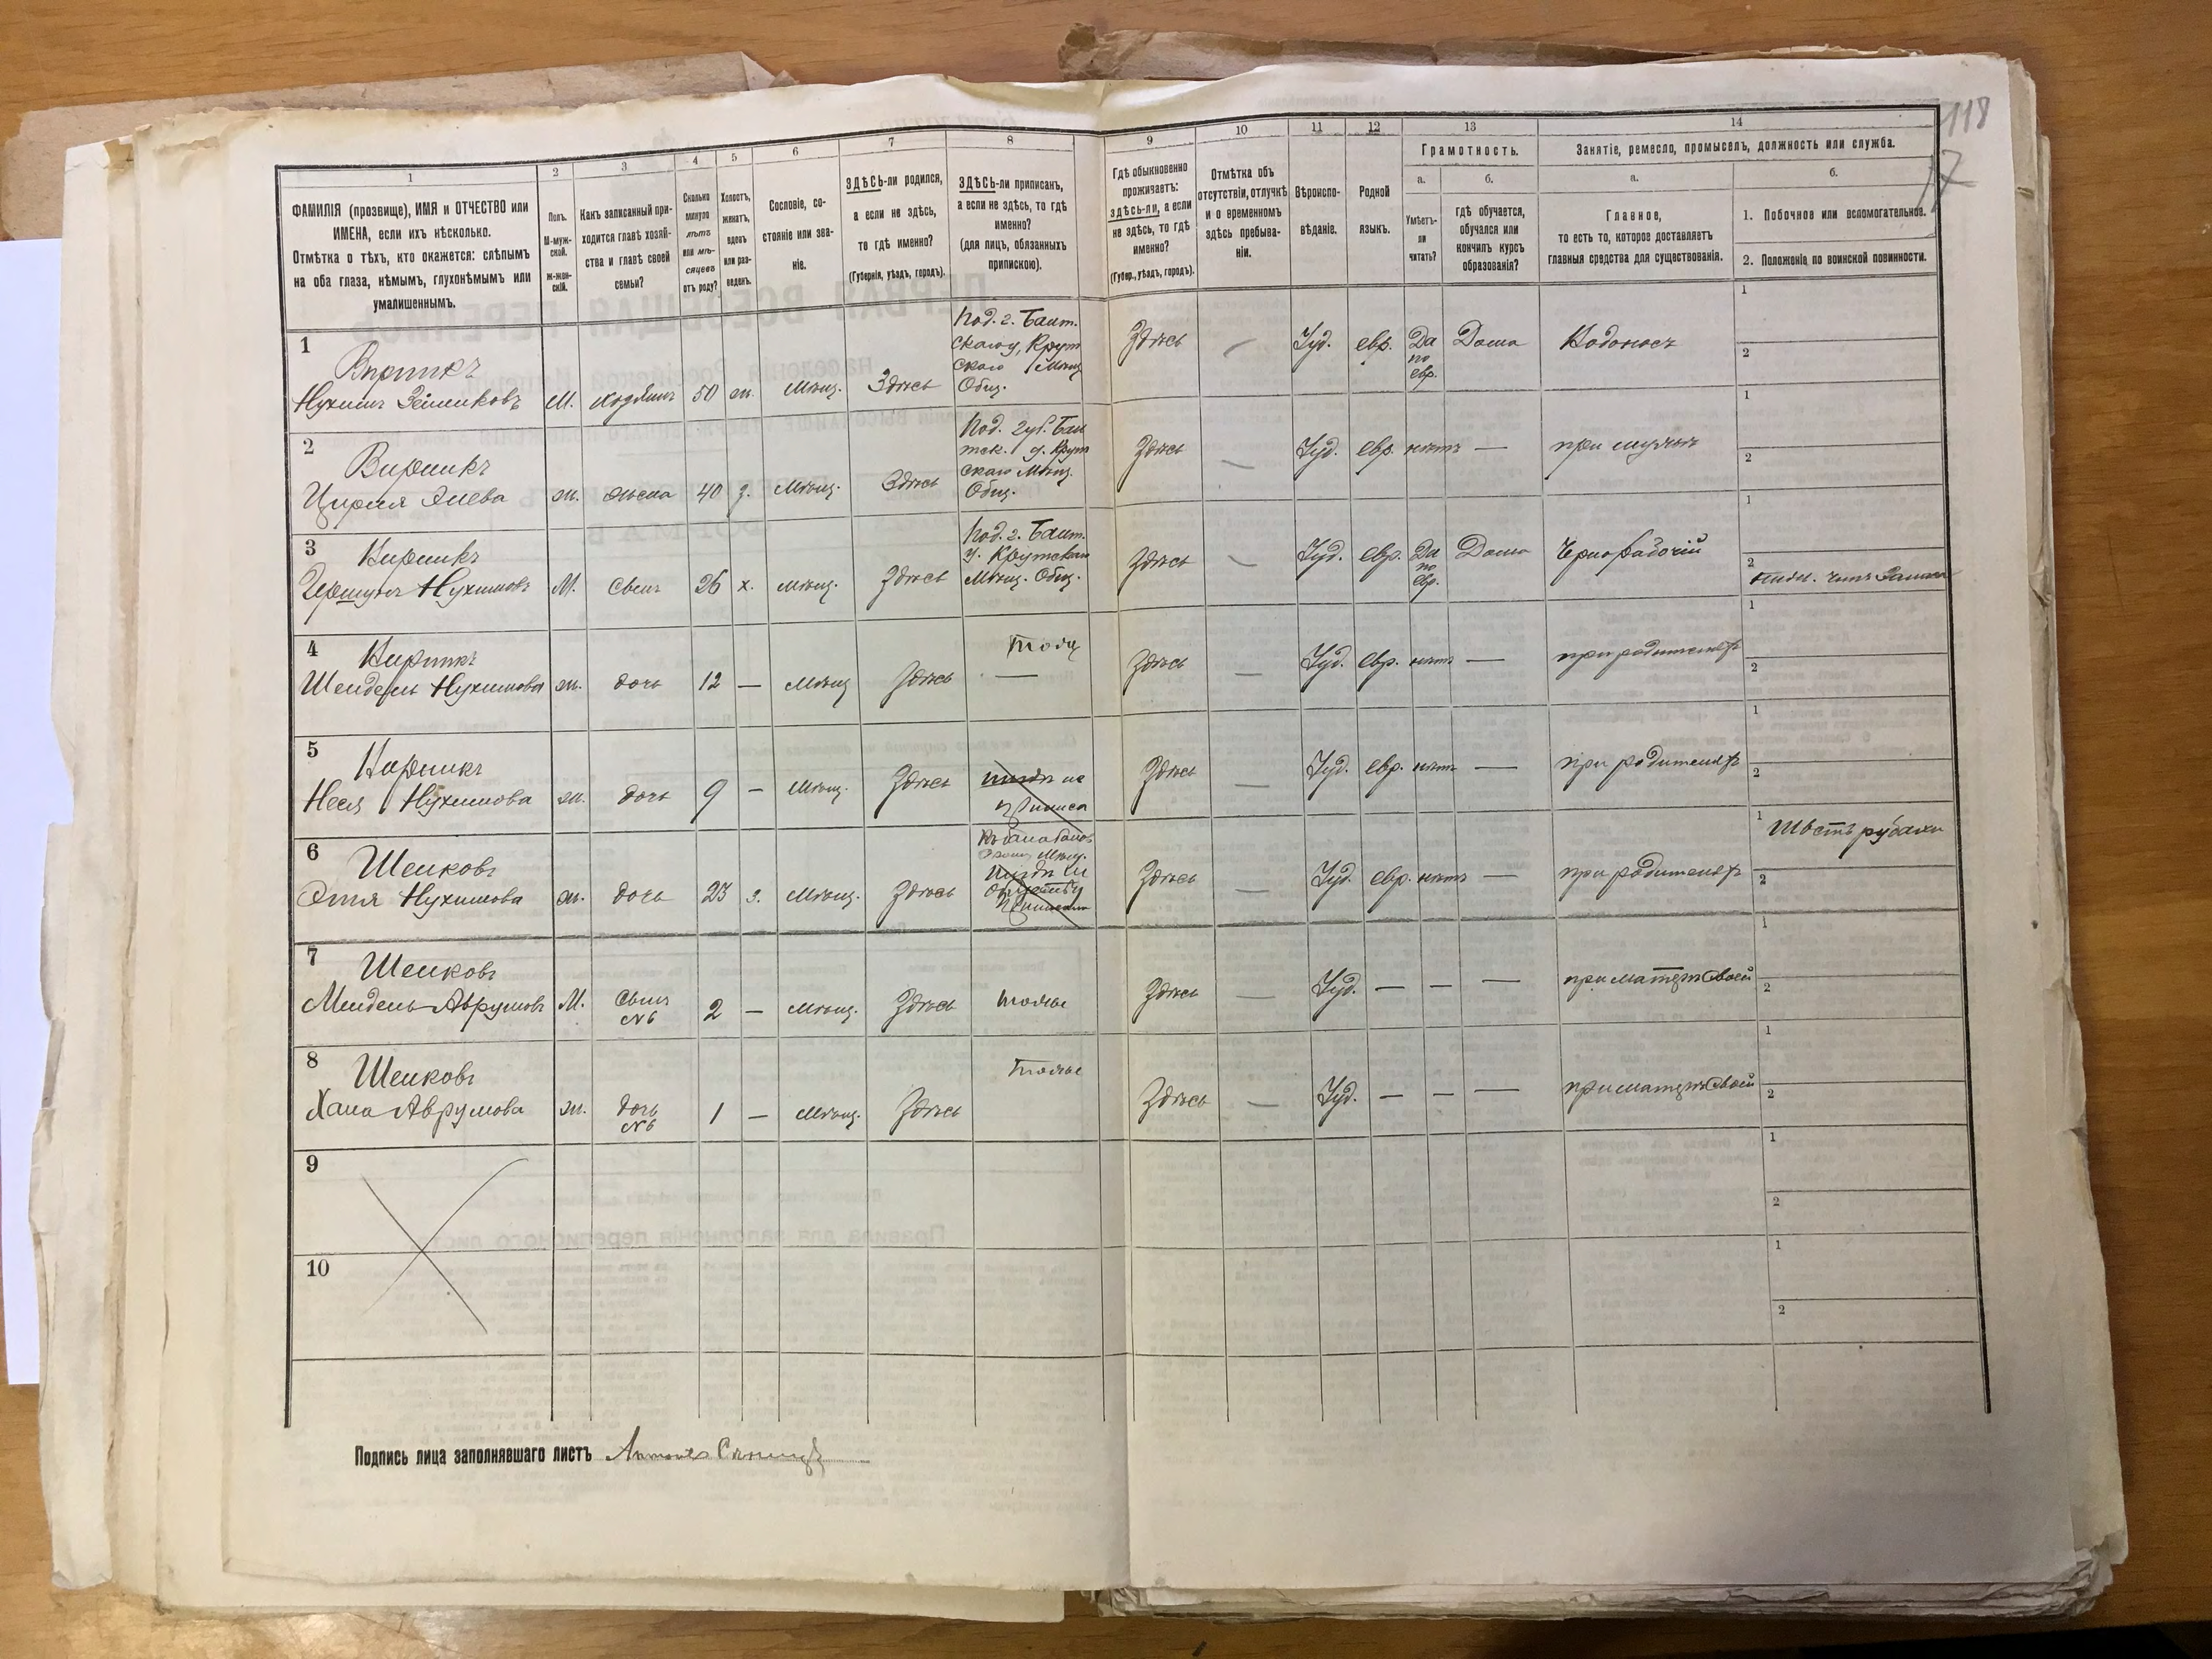 118
17
1
2
3
4
5
6
7
8
9
10
11
12
13
14
ФАМИЛІЯ (прозвище), ИМЯ и ОТЧЕСТВО или
ИМЕНА, если ихъ нѣсколько.
Отмѣтка о тѣхъ, кто окажется: слѣпымъ
на оба глаза, нѣмымъ, глухонѣмымъ или
умалишеннымъ.
Полъ.
М-муж-
ской.
Ж-жен-
скій.
Какъ записанный при-
ходится главѣ хозяй-
ства и главѣ своей
семьи?
Сколько
минуло
лѣтъ
или мѣ-
сяцевъ
отъ роду?
Холостъ,
женатъ,
вдовъ
или раз-
веденъ.
Сословіе, со-
стояніе или зва-
ніе.
ЗДѢСЬ-ли родился,
а если не здѣсь,
то гдѣ именно?
(Губернія, уѣздъ, городъ).
ЗДѢСЬ-ли приписанъ,
а если не здѣсь, то гдѣ
именно?
(для лицъ, обязанныхъ
припискою).
Гдѣ обыкновенно
проживаетъ:
здѣсь-ли, а если
не здѣсь, то гдѣ
именно?
(Губер., уѣздъ, городъ).
Отмѣтка объ
отсутствіи, отлучкѣ
и о временномъ
здѣсь пребыва-
ніи.
Вѣроиспо-
вѣданіе.
Родной
языкъ.
Грамотность.
а.
Умѣетъ-
ли
читать?
б.
гдѣ обучается,
обучался или
кончилъ курсъ
образованія?
Занятіе, ремесло, промыселъ, должность или служба.
а.
Главное,
то есть то, которое доставляетъ
главныя средства для существованія.
б.
1. Побочное или вспомогательное.
2. Положеніе по воинской повинности.
1
Нухимъ
М. 50 ж. Мѣщ. Здѣсь
Под. г. Балт.
Мѣщ
Общ.
Здѣсь — Іуд. евр. Да по евр. Дома Водоносъ
1
2
2
Вирникъ
ж. жена 40 з. Мѣщ. Здѣсь
Под. губ. Бал
скаго Мѣщ.
Общ.
Здѣсь — Іуд. евр. нѣтъ — при мужѣ
1
2
3
Вирникъ
Нухимовъ М. сынъ 26 х. мѣщ. Здѣсь
Под. г. Балт.
у. Крутскаго
Мѣщ. Общ.
Здѣсь — Іуд. евр. Да по евр. Дома Чернорабочій
1
2
4
Вирникъ
Шендель Нухимова ж. дочь 12 — Мѣщ Здѣсь
тоже
—
Здѣсь — Іуд. евр. нѣтъ —
1
2
5
Вирникъ
Неся Нухимова ж. дочь 9 — Мѣщ. Здѣсь
Здѣсь — Іуд. евр. нѣтъ —
1
2
6
Шенковъ
Этя Нухимова ж. дочь 23 з. Мѣщ. Здѣсь
Здѣсь — Іуд. евр. нѣтъ —
1 Шьетъ рубахи
2
7
Шенковъ
Мендель Аврумовъ М. сынъ № 6 2 — Мѣщ. Здѣсь тоже
Здѣсь — Іуд. — — — при матери своей
1
2
8
Шенковъ
Хана Аврумова ж. дочь № 6 1 — Мѣщ. Здѣсь тоже
Здѣсь — Іуд. — — — при матери своей
1
2
9
1
2
10
1
2
Подпись лица заполнявшаго листъ